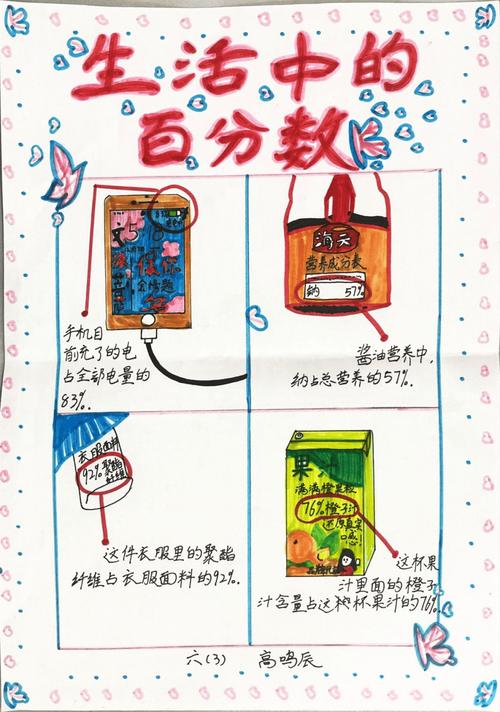 生活中的
百分数
手机目
前充了的电
占全部电量的
83%.
海天
营养成分表
钠 57%
酱油营养中,
钠占总营养的57%.
衣服面料
92%聚酯
纤维
这件衣服里的聚酯
纤维占衣服面料的92%.
果汁
满满橙果粒
76%橙子汁
还原真实
口感
这杯果
汁里面的橙子
汁含量占这杯果汁的76%.
六(3) 高鸣辰